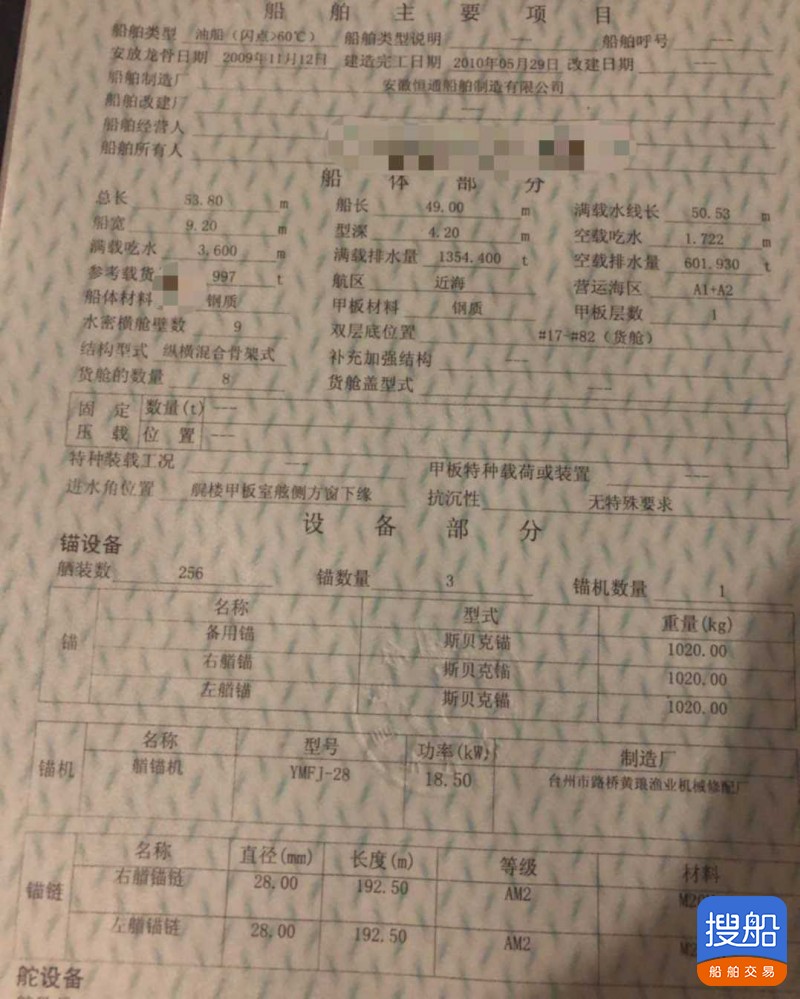 船 舶 主 要 项 目
船舶类型 油船（闪点>60℃） 船舶类型说明 --- 船舶呼号 ---
安放龙骨日期 2009年11月12日 建造完工日期 2010年05月29日 改建日期 ---
船舶制造厂 安徽恒通船舶制造有限公司
船舶改建厂 ---
船舶经营人
船舶所有人
船 体 部 分
总长 53.80 m 船长 49.00 m 满载水线长 50.53 m
船宽 9.20 m 型深 4.20 m 空载吃水 1.722 m
满载吃水 3.600 m 满载排水量 1354.400 t 空载排水量 601.930 t
参考载货 997 t 航区 近海 营运海区 A1+A2
船体材料 钢质 甲板材料 钢质 甲板层数 1
水密横舱壁数 9 双层底位置 #17-#82（货舱）
结构型式 纵横混合骨架式 补充加强结构 ---
货舱的数量 8 货舱盖型式 ---
固 定 数量(t) ---
压 载 位 置 ---
特种装载工况 --- 甲板特种载荷或装置 ---
进水角位置 艉楼甲板室舷侧方窗下缘 抗沉性 无特殊要求
设 备 部 分
锚设备
舾装数 256 锚数量 3 锚机数量 1
锚 名称 型式 重量(kg)
备用锚 斯贝克锚 1020.00
右艏锚 斯贝克锚 1020.00
左艏锚 斯贝克锚 1020.00
锚机 名称 型号 功率(kW) 制造厂
艏锚机 YMFJ-28 18.50 台州市路桥黄琅渔业机械修配厂
锚链 名称 直径(mm) 长度(m) 等级 材料
右艏锚链 28.00 192.50 AM2
左艏锚链 28.00 192.50 AM2
舵设备
搜船
船舶交易